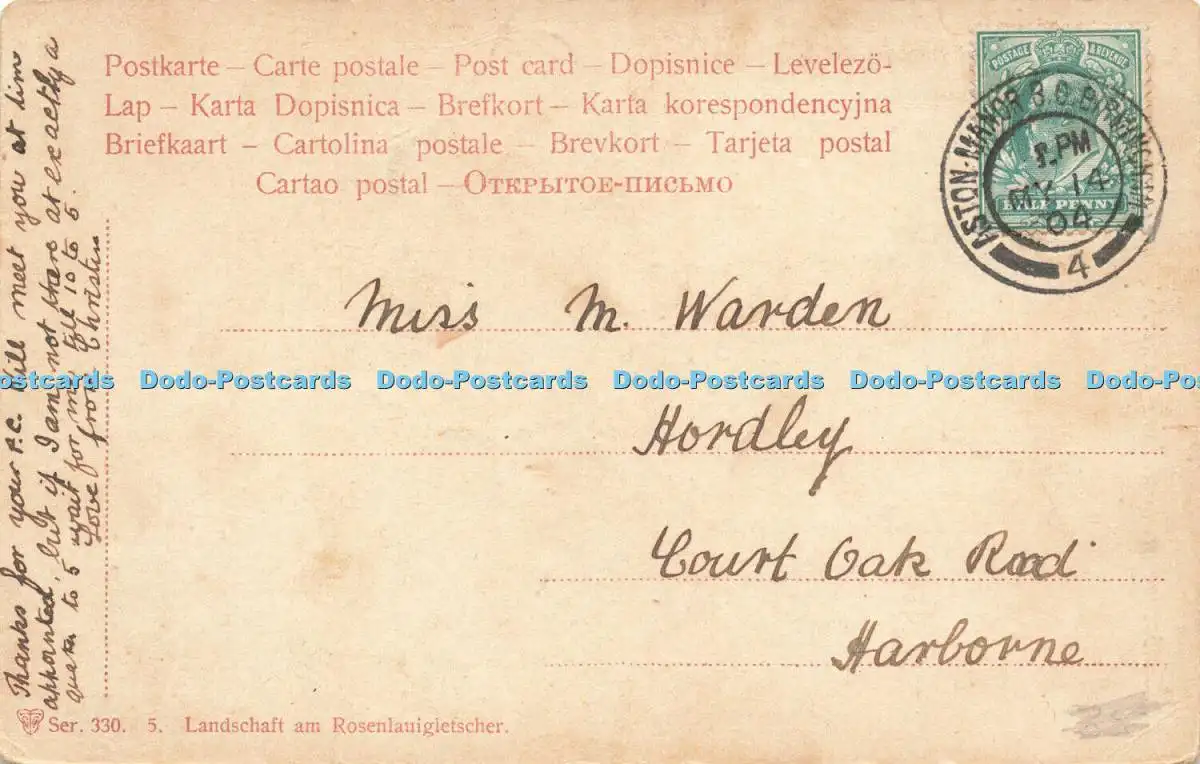 Postkarte – Carte postale – Post card – Dopisnice – Levelező-
Lap – Karta Dopisnica – Brefkort – Karta korespondencyjna
Briefkaart – Cartolina postale – Brevkort – Tarjeta postal
Cartao postal – Открытое-письмо
POSTAGE & REVENUE
HALF PENNY
ASTON-MANOR B.O. BIRMINGHAM
PM
MY 14
04
4
Thanks for your P.C. Will meet you at time
appointed, but if I am not there at exactly a
quater to 5 wait for me till 10 to 5.
Love from Christine
Miss M. Warden
Hordley
Court Oak Road
Harborne
Dodo-Postcards Dodo-Postcards Dodo-Postcards Dodo-Postcards
Ser. 330. 5. Landschaft am Rosenlauigletscher.